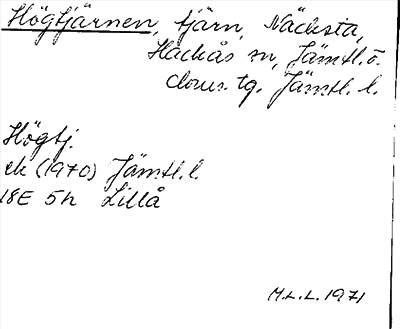 Högtjärnen, tjärn, Näcksta,
Hackås sn, Jämtl. ö.
doms. tg. Jämtl. l.
Högtj.
ek (1970) Jämtl. l.
18E 5h Lillå
M.L.L. 1971